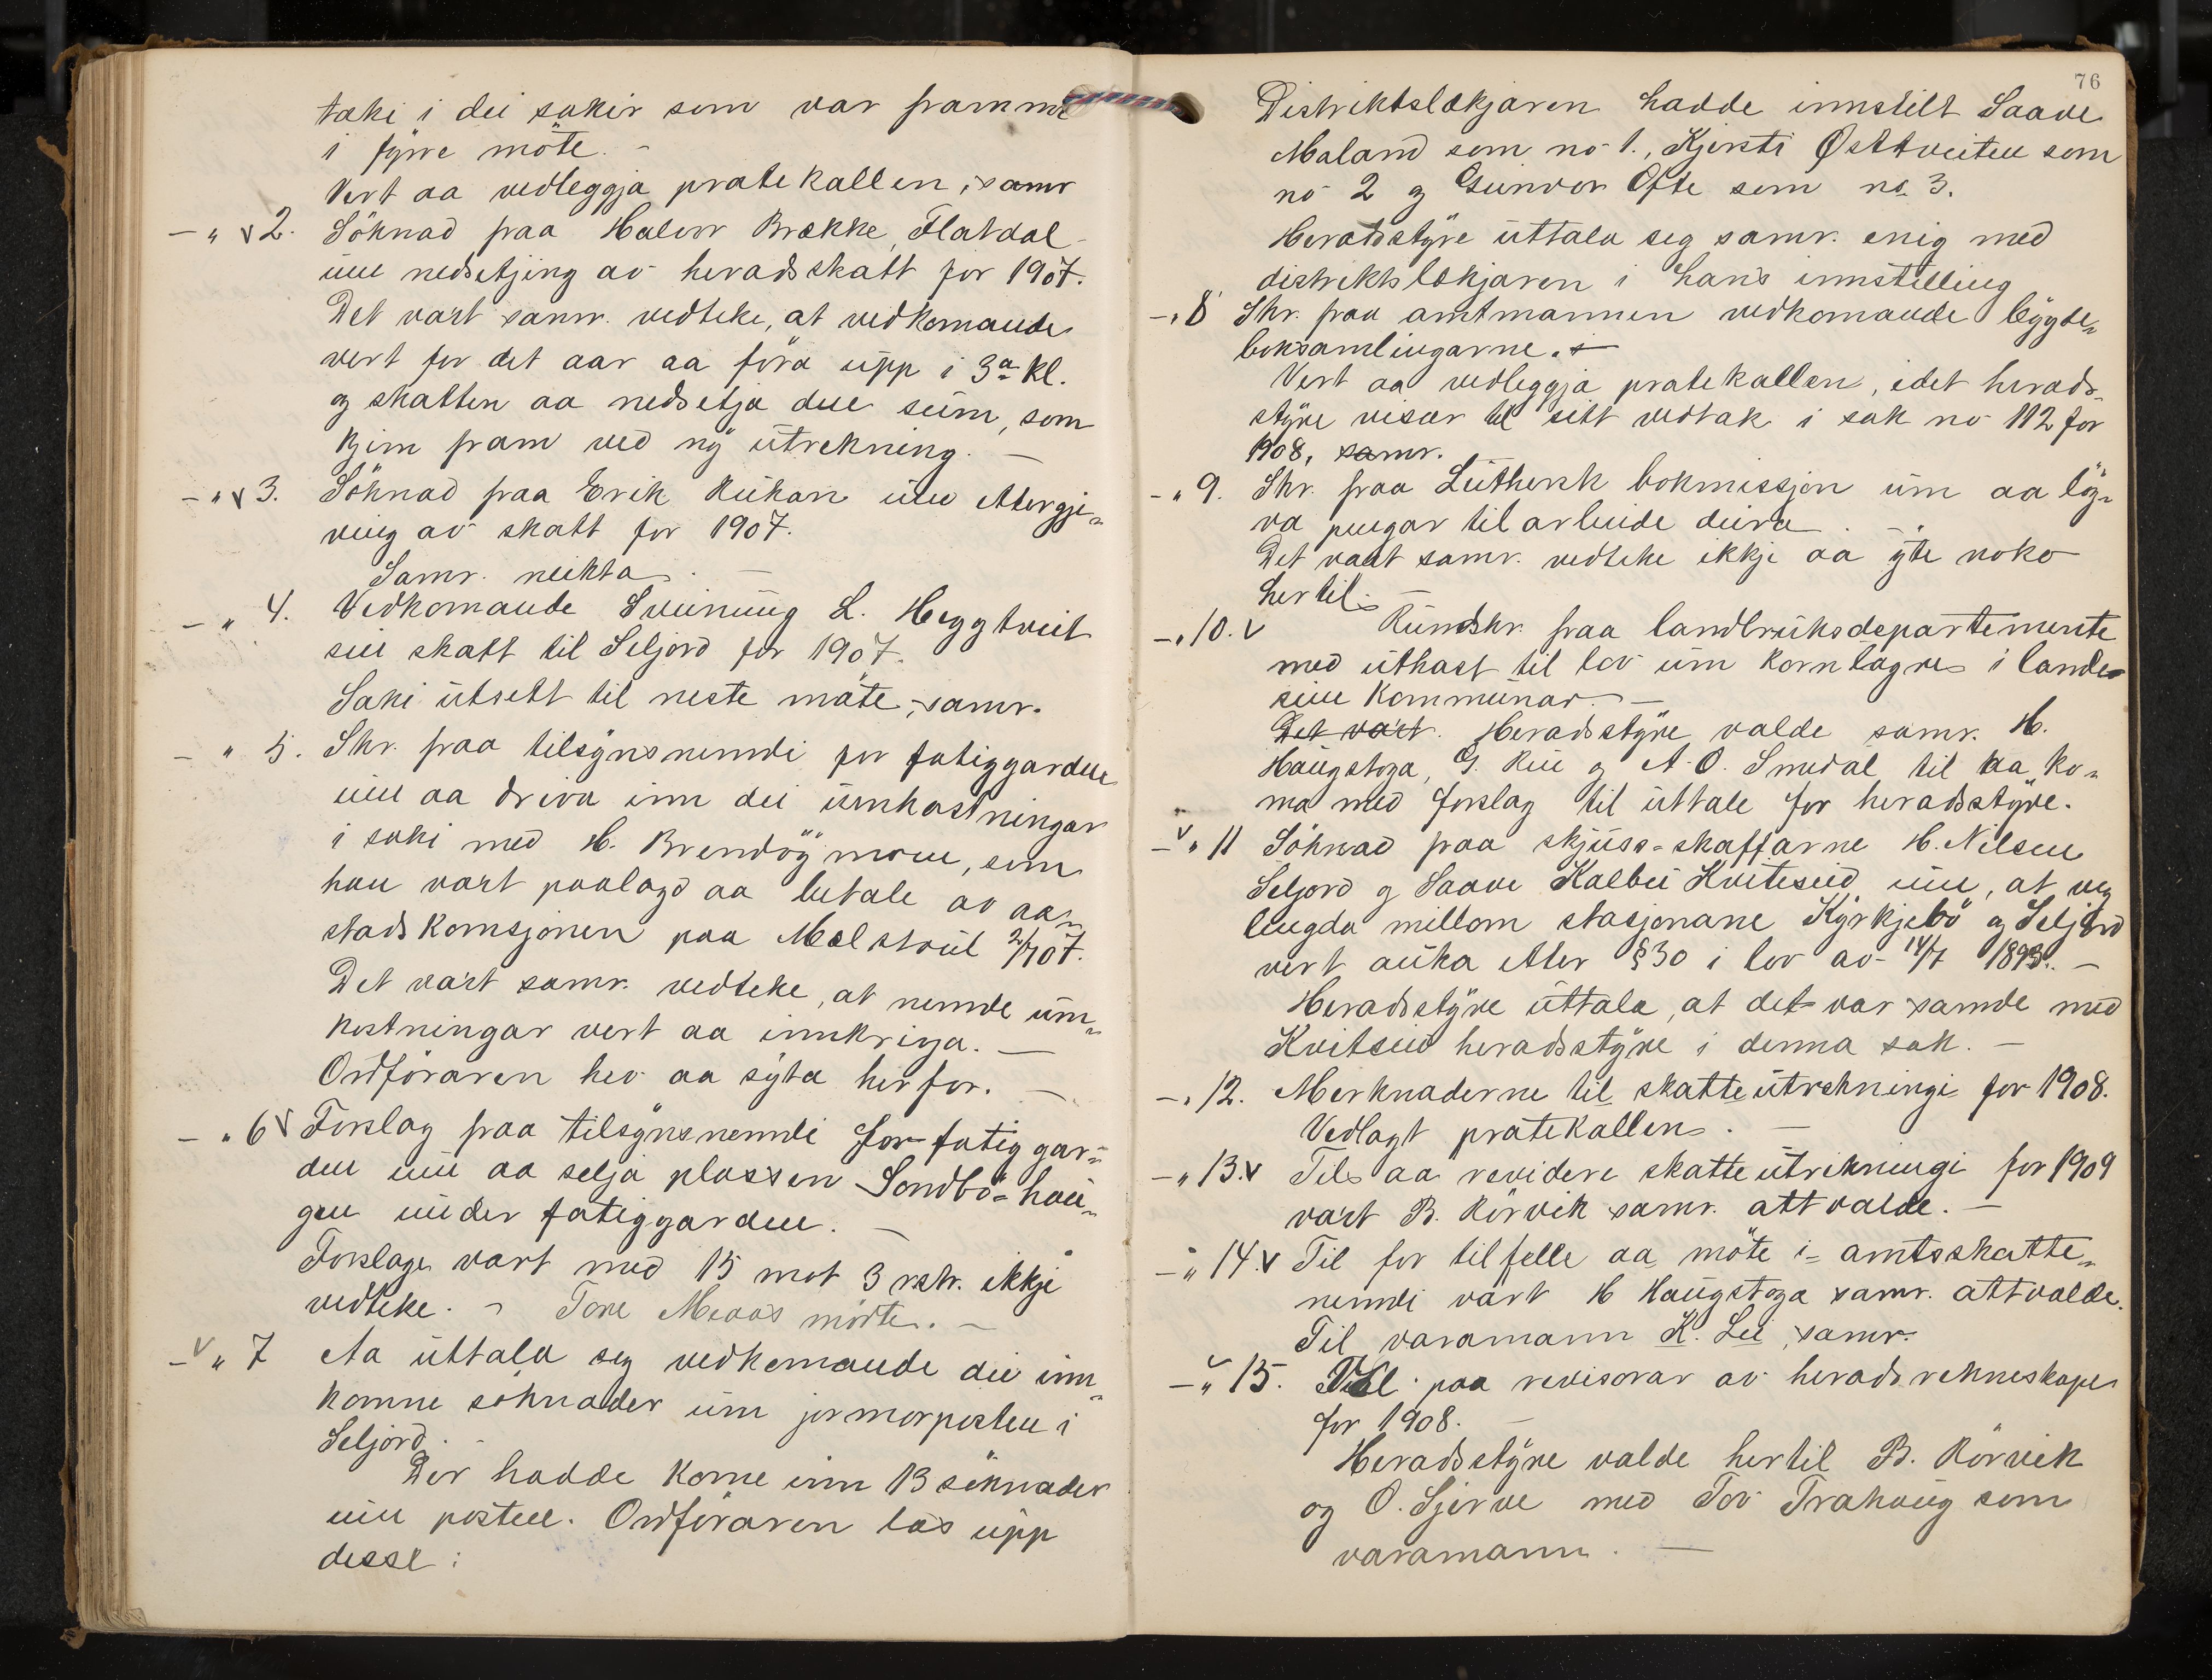 taki i dei sakir som var framme
i fyrre möte. -
Vert aa vedleggja pratekallen, samr
- " v 2. Söknad fraa Halvor Brække, Flatdal
um nedsetjing av heradsskatt for 1907.
Det vart samr. vedteke, at vedkomande
vert for det aar aa föra upp i 3a kl.
og skatten aa nedsetja den sum, som
kjem fram ved ny utrekning. -
- " v 3. Söknad fraa Erik Rukan um attergje-
ving av skatt for 1907.
Samr. neikta. -
- " 4. Vedkomande Sveinung L. Heggtveit
sin skatt til Seljord for 1907.
Saki utsett til neste möte, samr.
- " 5. Skr. fraa tilsynsnemndi for fatiggarden
um aa driva inn dei umkostningar
i saki med H. Brendöymoen, som
han vart paalagd aa betale av aa-
stadskomsjonen paa Mælstveil 2/7 07.
Det vart samr. vedteke, at nemde um-
kostningar vert aa innkrevja. -
Ordföraren hev aa syta herfor. -
- " 6 v Forslag fraa tilsynsnemndi for fatiggar-
den um aa selja plassen Sondbö-hau-
gen under fatiggarden. -
Forslage vart med 15 mot 3 rstr. ikkje
vedteke. - Tore Meaas mötte. -
- v " 7 Aa uttala seg vedkomande dei inn-
komne söknader um jormorposten i
Seljord. -
Der hadde kome inn 13 söknader
um posten. Ordföraren las upp
desse:
76
Distriktslækjaren hadde innstilt Saave
Maland som no 1., Kjersti Østtveiten som
no 2 og Gunvor Ofte som no. 3.
Heradsstyre uttala seg samr. enig med
distriktslækjaren i hans innstelling
- " 8 Skr. fraa amtmannen vedkomande bygde-
boksamlingarne. -
Vert aa vedleggja pratekallen, idet herads-
styre visar til sitt vedtak i sak no 112 for
1908, samr.
- " 9. Skr. fraa Luthersk bokmissjon um aa löy-
va pengar til arbeide deira. -
Det vart samr. vedteke ikkje aa yte noko
hertil. -
- " 10. v Rundskr. fraa landbruksdepartemente
med uthast til lov um kornlagre i lande
sine kommunar. -
Det vart. Heradsstyre valde samr. H.
Haugstoga, G. Rui og A. O. Smedal til aa ko-
ma med forslag til uttale for heradsstyre.
- v " 11 Söknad fraa skjuss-skaffarne H. Nilsen
Seljord og Saave Kalbei Kviteseid um, at veg
lengda millom stasjonane Kyrkjebö og Seljord
vert auka etter § 30 i lov av 14/7 1893. -
Heradsstyre uttala, at det var samde med
Kvitseid heradsstyre i denna sak. -
- " 12. Merknaderne til skatteutrekningi for 1908.
Vedlagt pratekallen. -
- " 13. v Til aa revidere skatteutrekningi for 1909
vart B. Rörvik samr. attvalde. -
- " 14. v Til for tilfelle aa möte i amtsskatte-
nemndi vart H Haugstoga samr. attvalde.
Til varamann K. Lei, samr.
- " 15. Val paa revisorar av heradsrekneskape
for 1908. -
Heradsstyre valde hertil B. Rörvik
og O. Gjerve med Tov Trahaug som
varamann. -